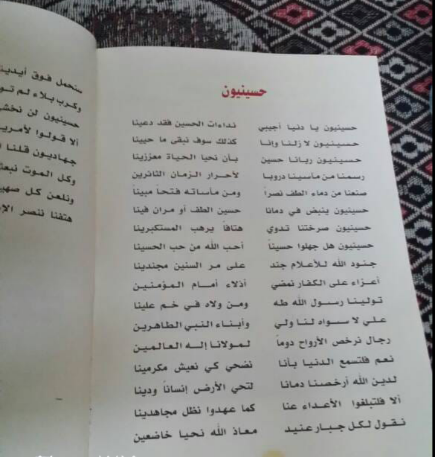 حسينيون
حسينيون يا دنيا أجيبي نداءات الحسين فقد دعينا
حسينيون لا زلنا وإنا كذلك سوف نبقى ما حيينا
حسينيون ربانا حسين بان نحيا الحياة معززينا
رسمنا من مآسينا دروبا لأحرار الزمان الثائرين
صنعنا من دماء الطف نصراً ومن مأساته فتحاً مبيناً
حسينيون ينبض في دمانا حسين الطف أو مران فينا
حسينيون صرختنا تدوي هتافاً يرهب المستكبرينا
حسينيون هل جهلوا حسيناً أحب الله من حب الحسينا
جنود الله للأعلام جند على مر السنين مجندينا
أعزاء على الكفار نمضي أذلاء أمام المؤمنين
تولينا رسول الله طه ومن ولاه في خم علينا
علي لا سواه لنا ولي وأبناء النبي الطاهرين
رجال نرخص الأرواح دوماً لمولانا إله العالمين
نعم فلتسمع الدنيا بأنا نضحي كي نعيش مكرمينا
لدين الله أرخصنا دمانا لتحي الأرض إنساناً ودينا
ألا فلتبلغوا الأعداء عنا كما عهدوا نظل مجاهدينا
نقول لكل جبار عنيد معاذ الله نحيا خاضعين
سنحمل فوق
وكرب بلاء لم
حسينيون لن
ألا قولوا
جهاديون قلنا
وكل الموت
ونلعن كل
هتفنا ننصر